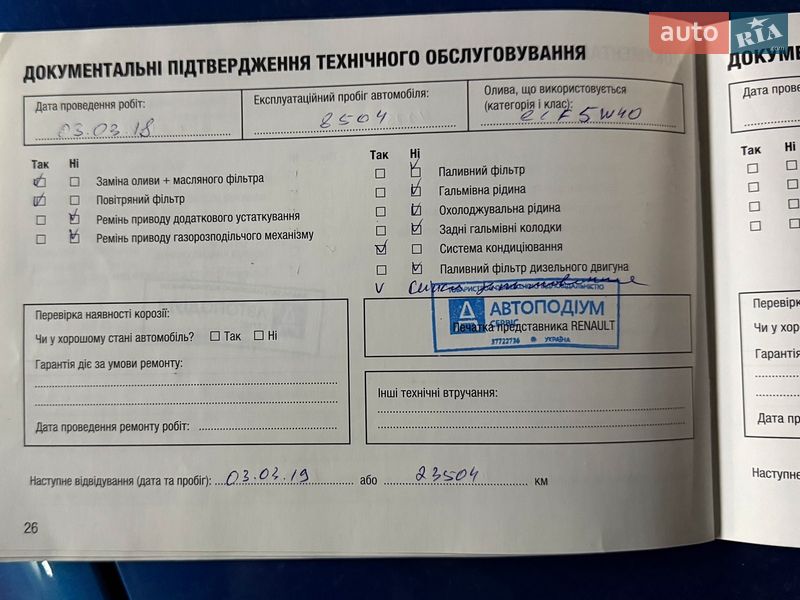 auto RIA .com
ДОКУМЕНТАЛЬНІ ПІДТВЕРДЖЕННЯ ТЕХНІЧНОГО ОБСЛУГОВУВАННЯ
Дата проведення робіт:
03.03.18
Експлуатаційний пробіг автомобіля:
8504
Олива, що використовується
(категорія і клас):
elf 5W40
Так Ні
Заміна оливи + масляного фільтра
Повітряний фільтр
Ремінь приводу додаткового устаткування
Ремінь приводу газорозподільчого механізму
Так Ні
Паливний фільтр
Гальмівна рідина
Охолоджувальна рідина
Задні гальмівні колодки
Система кондиціювання
Паливний фільтр дизельного двигуна
V
АВТОПОДІУМ
СЕРВІС
Печатка представника RENAULT
37722736 УКРАЇНА
Перевірка наявності корозії:
Чи у хорошому стані автомобіль? Так Ні
Гарантія діє за умови ремонту:
Дата проведення ремонту робіт:
Інші технічні втручання:
Наступне відвідування (дата та пробіг): 03.03.19 або 23504 км
26
Дата прове
Так Ні
Перевірка
Чи у хорош
Гарантія
Дата пр
Наступне